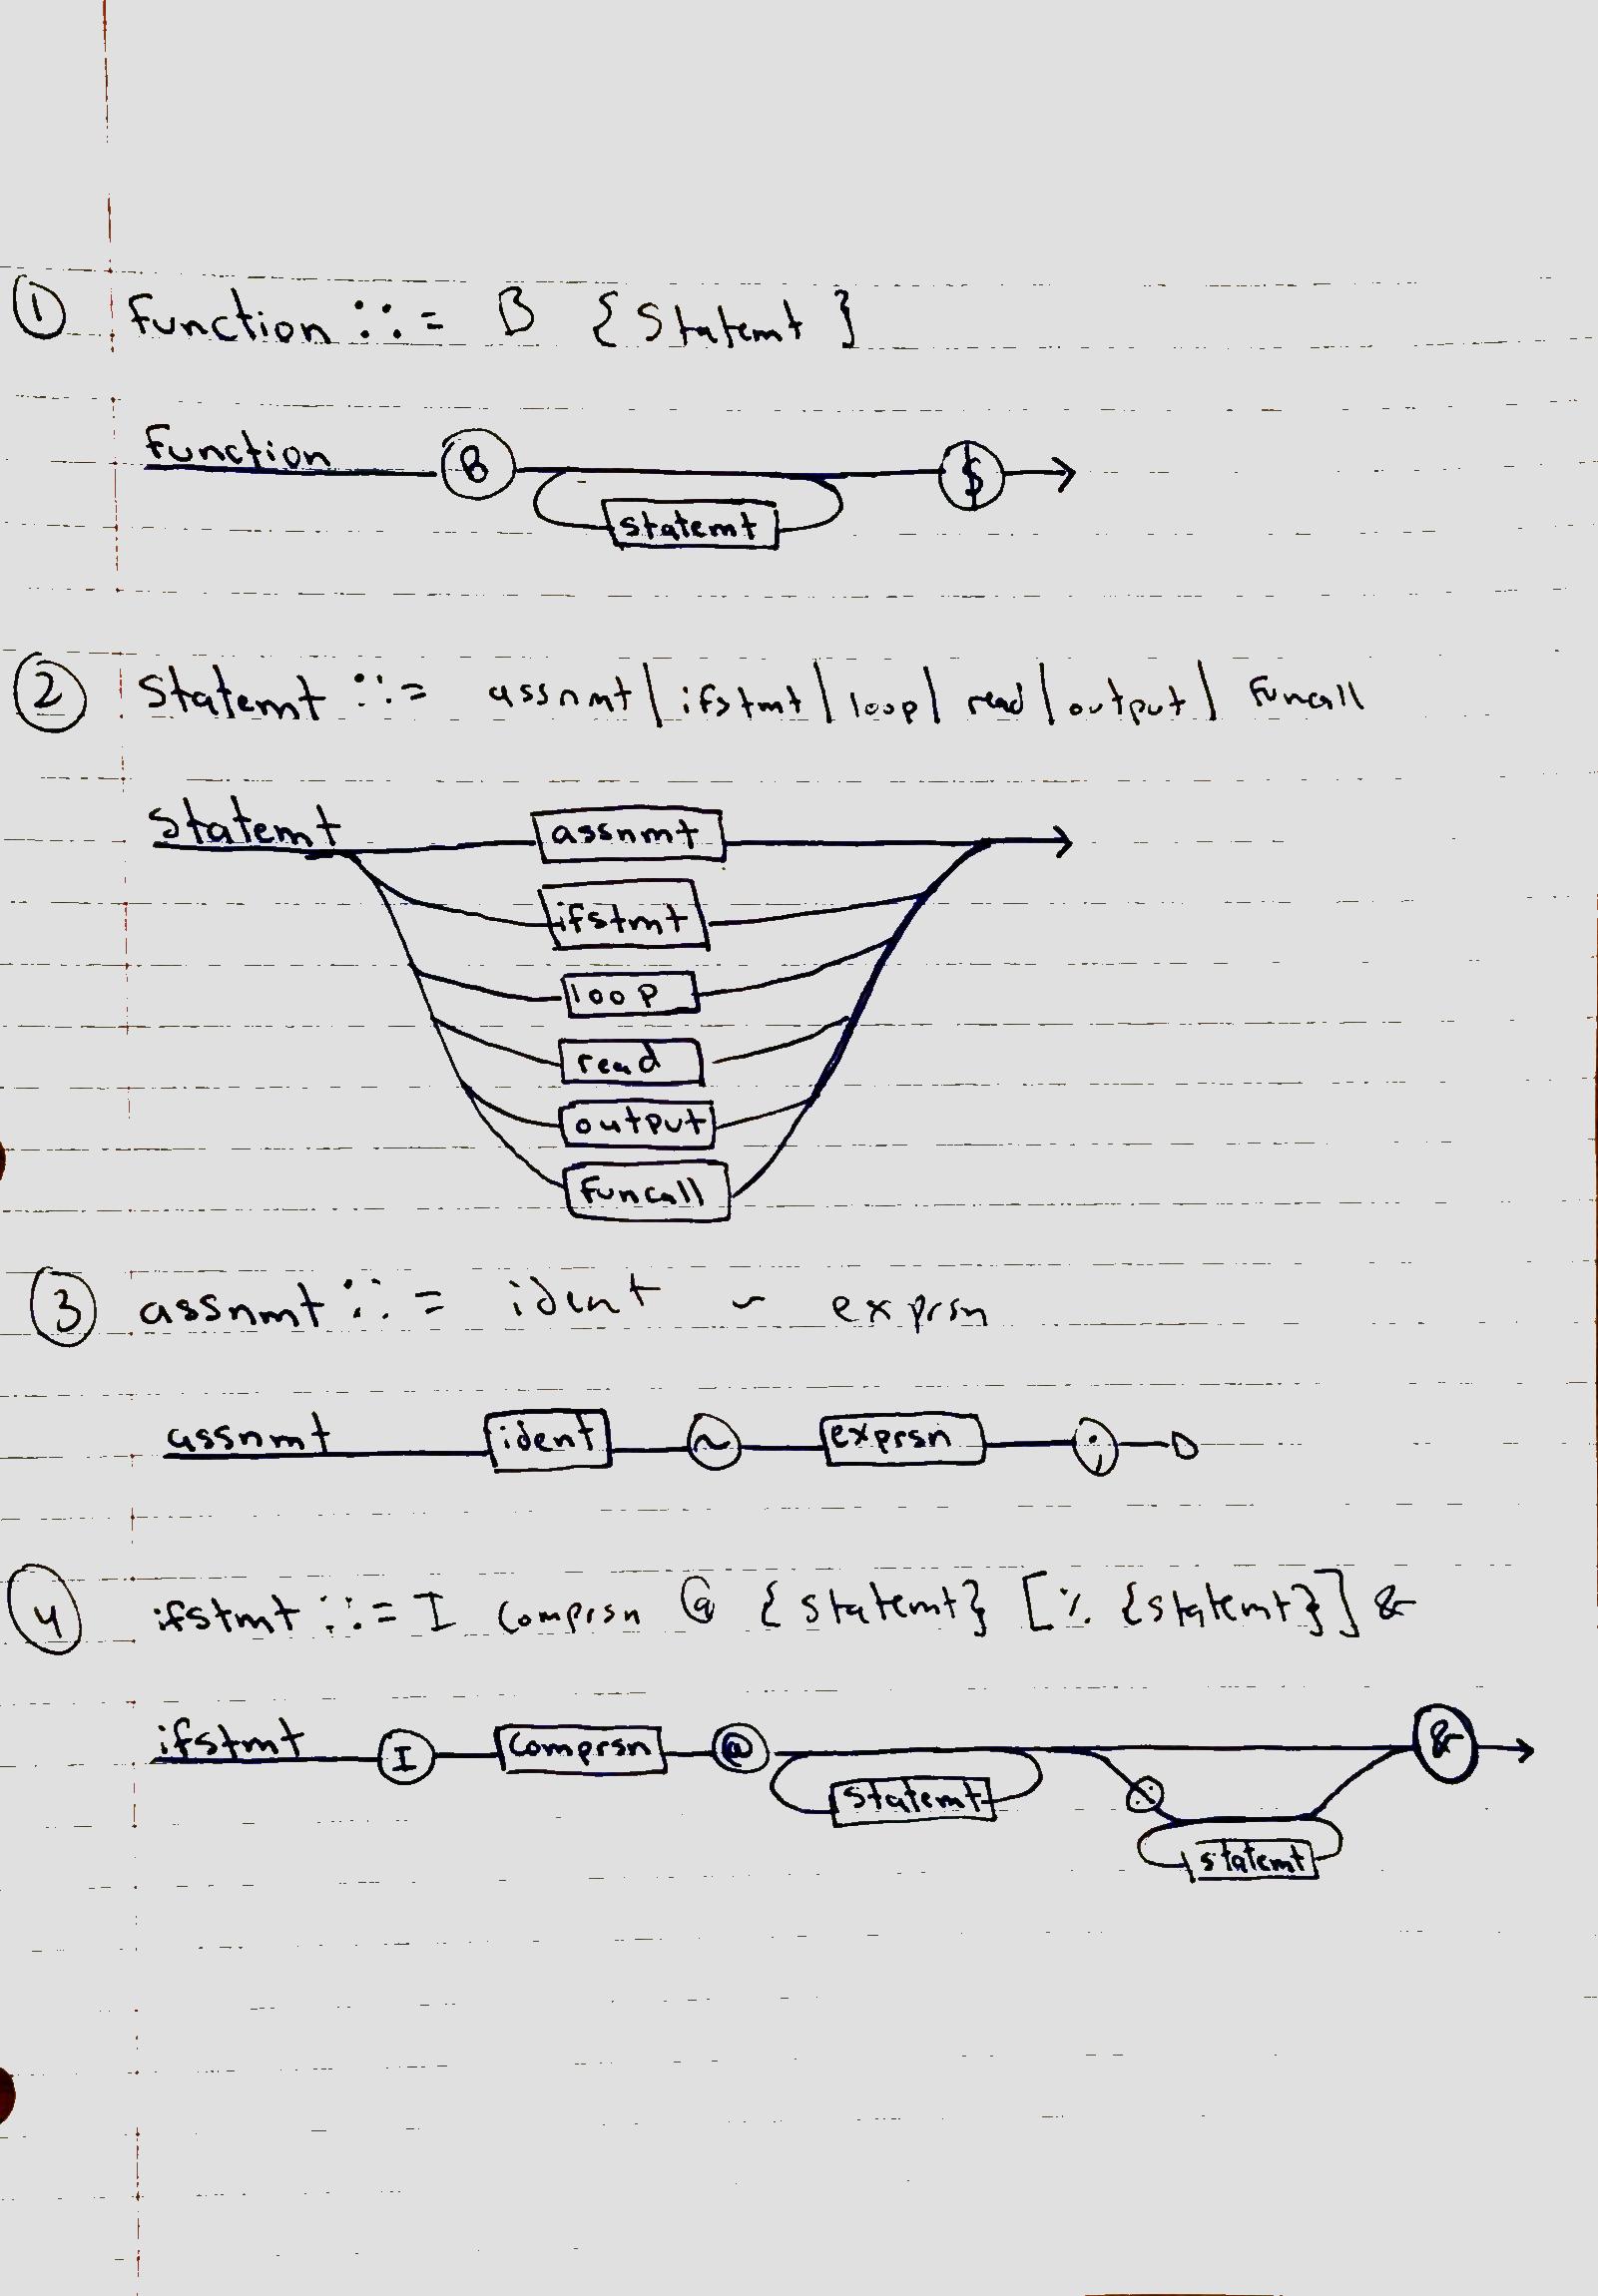 ① function ::= B {Statemt}
function B $
statemt
② Statemt ::= assnmt | ifstmt | loop | read | output | funcall
Statemt assnmt
ifstmt
loop
read
output
funcall
③ assnmt ::= ident ~ exprsn
assnmt ident ~ exprsn ;
④ ifstmt ::= I Comprsn @ {statemt} [% {statemt}] &
ifstmt I Comprsn @ &
Statemt
statemt